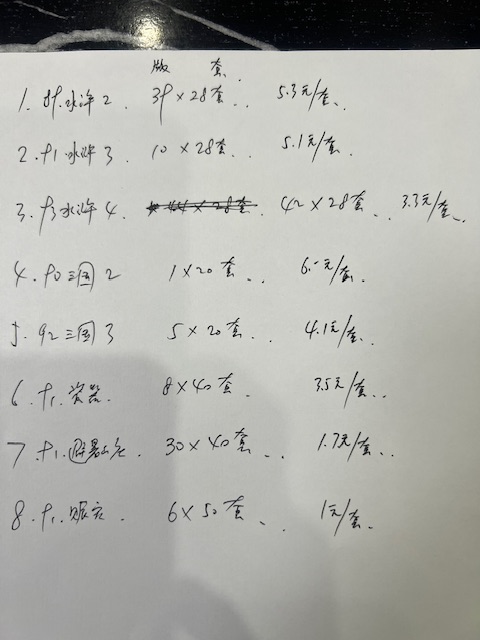 版 套
1. 89.水浒2. 39×28套.. 5.3元/套..
2. 91.水浒3. 10×28套.. 5.1元/套.
3. 93水浒4. 44×28套 42×28套.. 3.3元/套..
4. 90三国2 1×20套.. 6.-元/套.
5. 92三国3 5×20套.. 4.1元/套.
6. 91.瓷器. 8×40套. 3.5元/套..
7. 91.避暑山庄. 30×40套.. 1.7元/套..
8. 91.赈灾. 6×50套.. 1元/套.